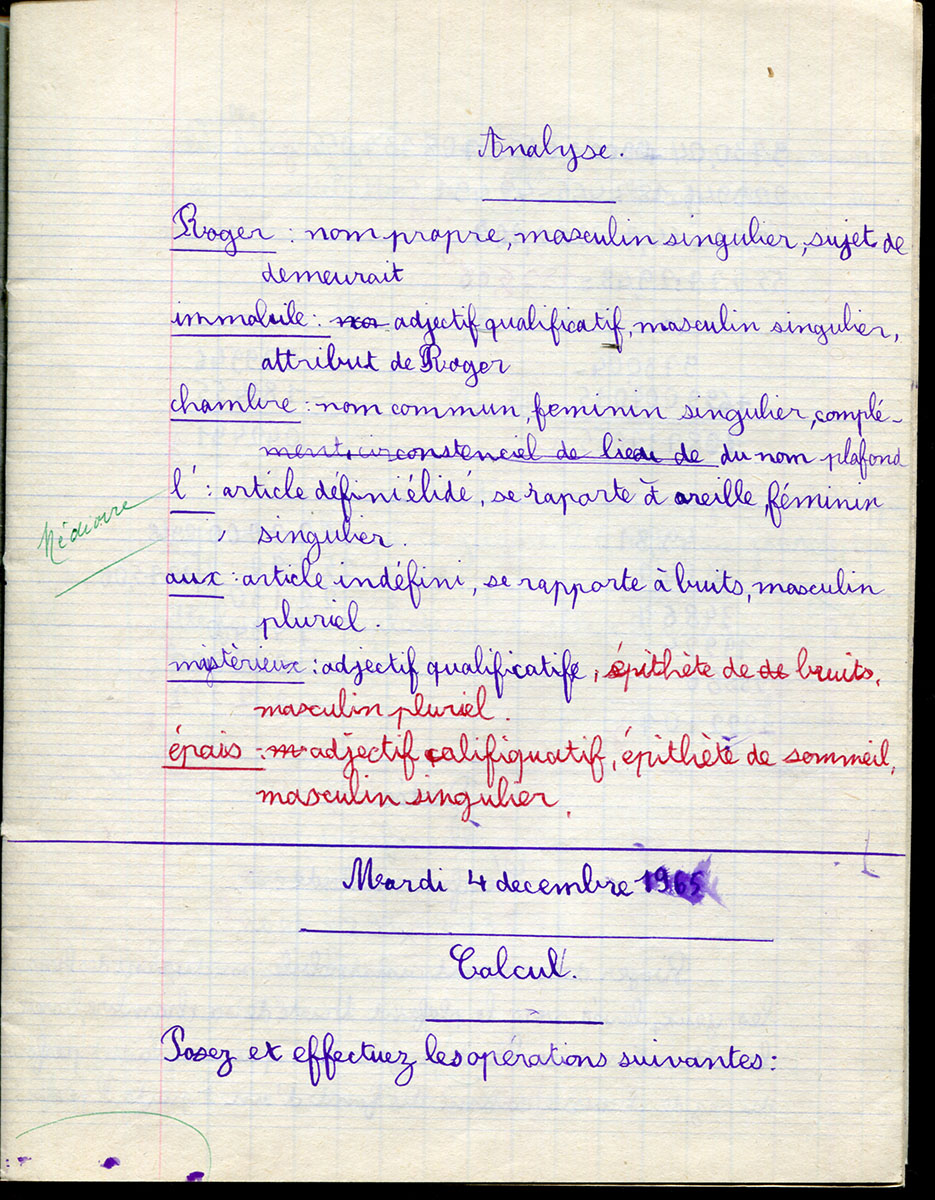 Analyse.
Roger : nom propre, masculin singulier, sujet de
demeurait
immobile : adjectif qualificatif, masculin singulier,
attribut de Roger
chambre : nom commun, feminin singulier, complé-
ment circonstenciel de lieu de du nom plafond
l' : article défini élidé, se raporte à oreille, féminin
singulier.
aux : article indéfini, se rapporte à bruits, masculin
pluriel.
mistèrieux : adjectif qualificatife, épithète de de bruits,
masculin pluriel.
épais : m adjectif califiquatif, épithète de sommeil,
masculin singulier.
Médiocre
Mardi 4 decembre
Calcul.
Posez et effectuez les opérations suivantes :